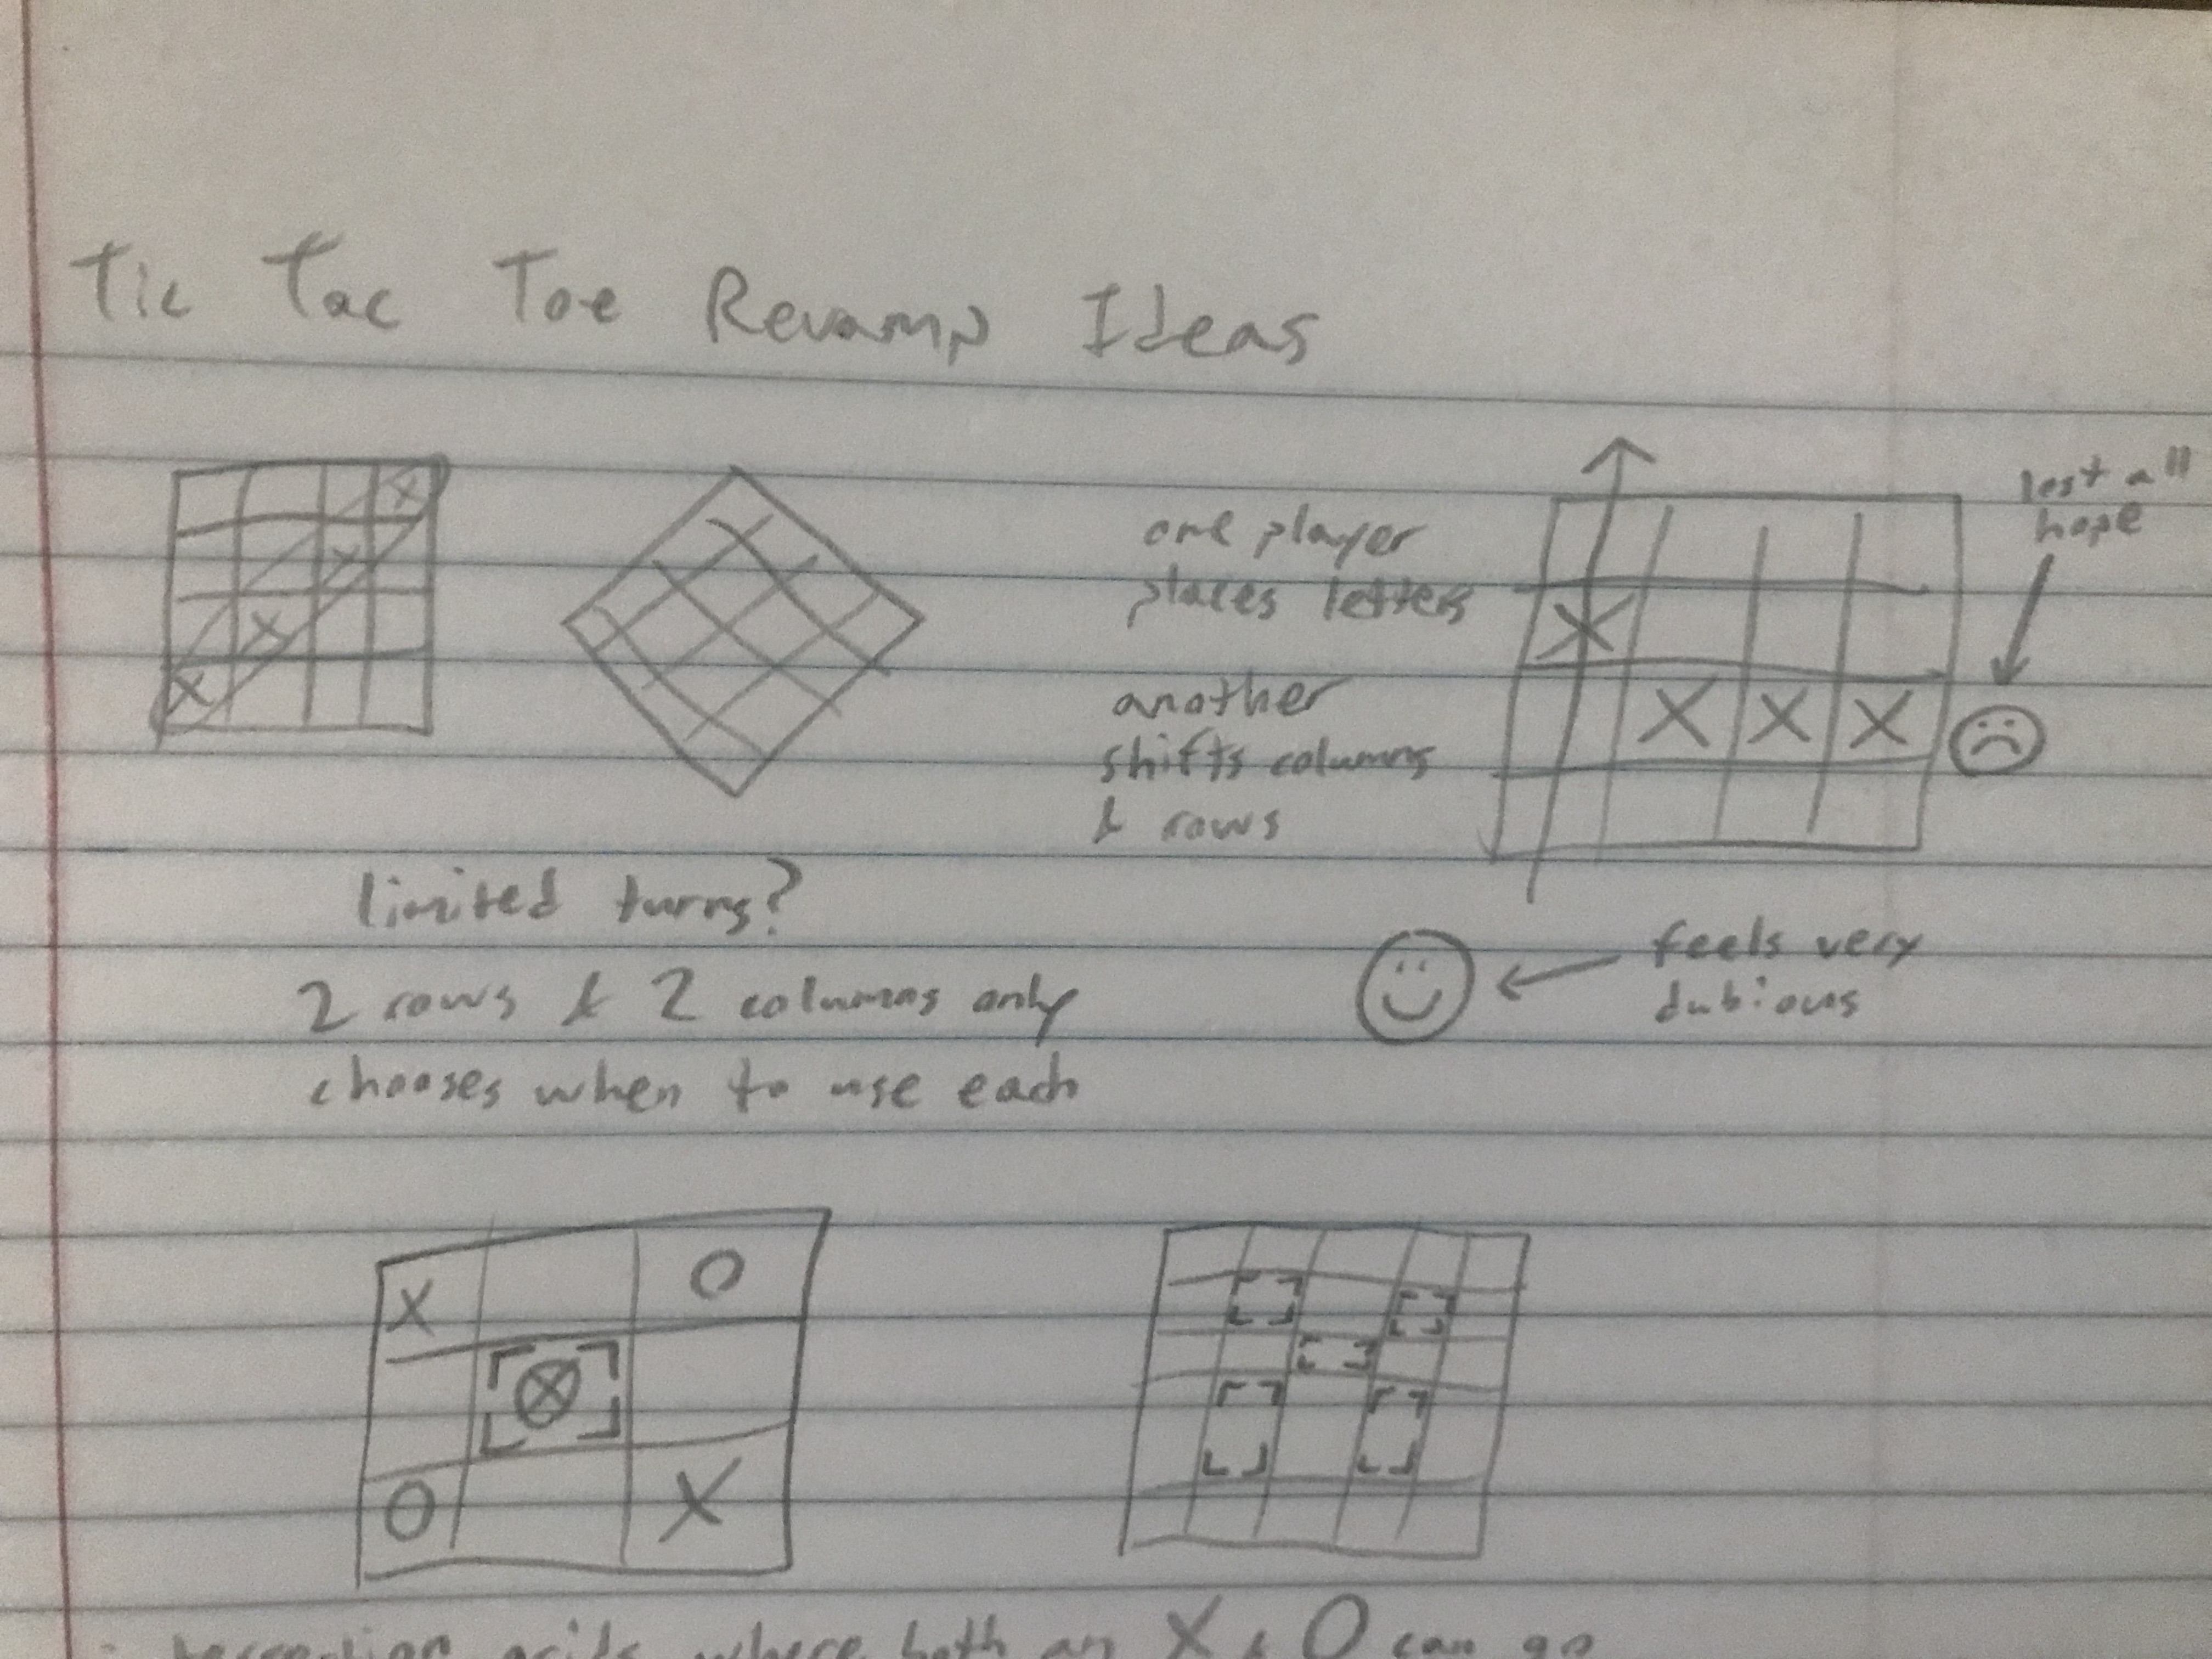 Tic Tac Toe Revamp Ideas
X
X
X
X
one player
places letters
another
shifts columns
& rows
X
X X X
lost all
hope
feels very
dubious
limited turns?
2 rows & 2 columns only
chooses when to use each
X O
X
O X
grids where both an X & O can go